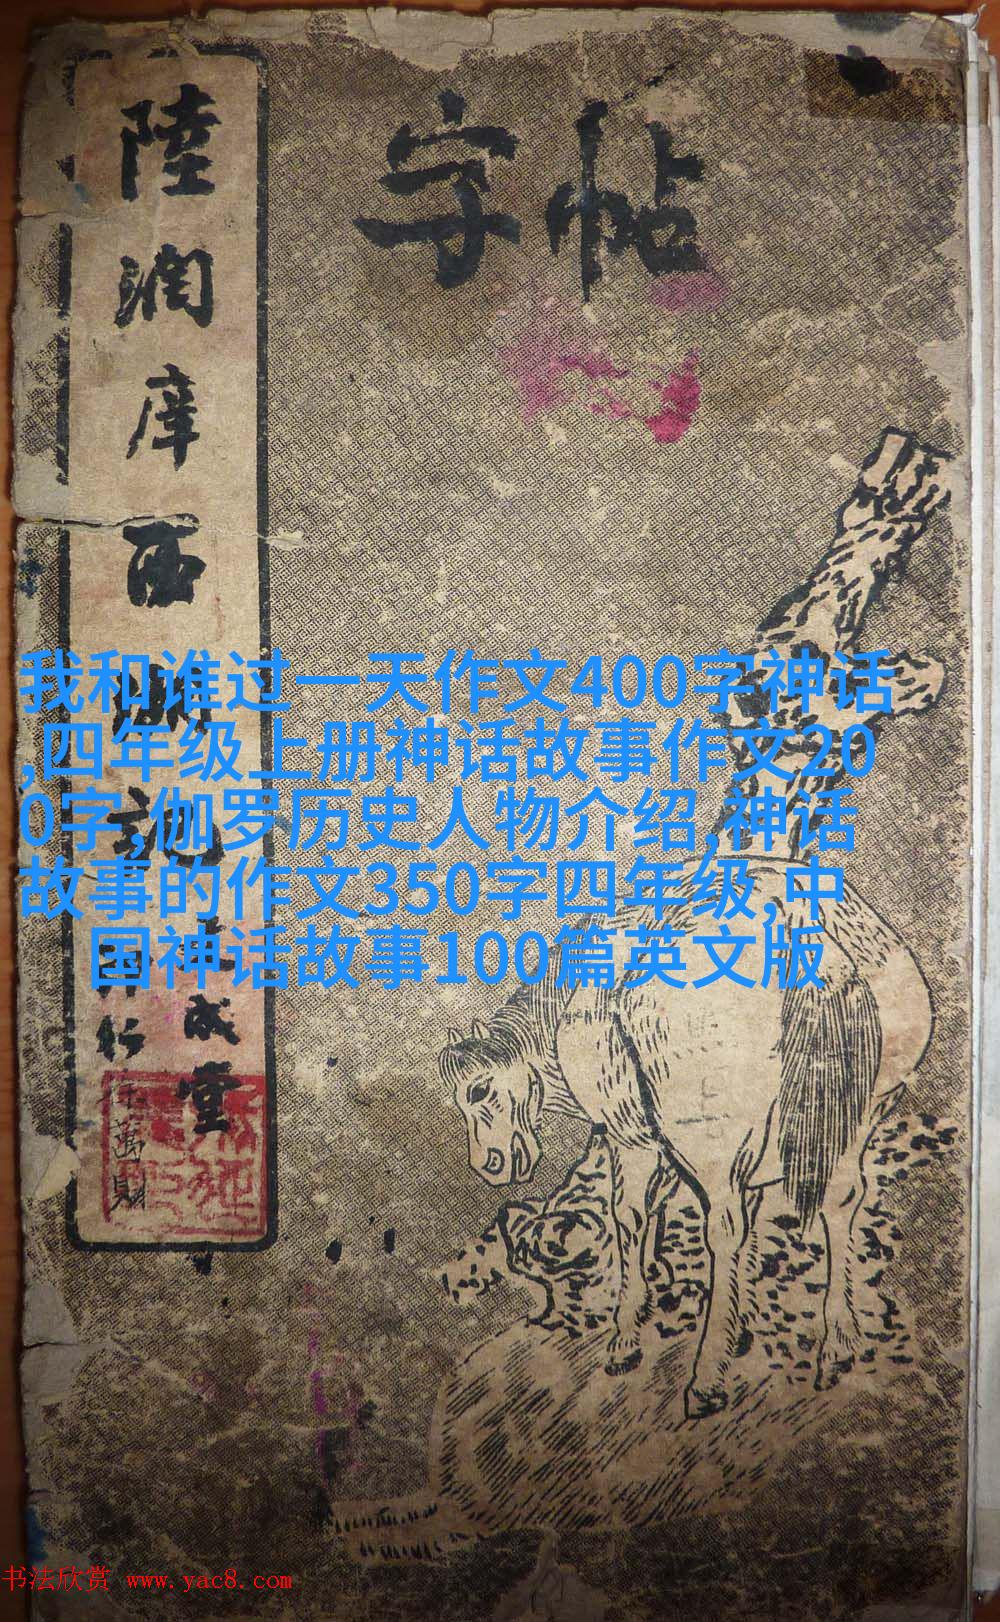 字帖
陸潤庠西
成堂
萬財
我和谁过一天作文400字神话
,四年级上册神话故事作文20
0字,伽罗历史人物介绍,神话
故事的作文350字四年级,中
国神话故事100篇英文版
书法欣赏 www.yac8.com